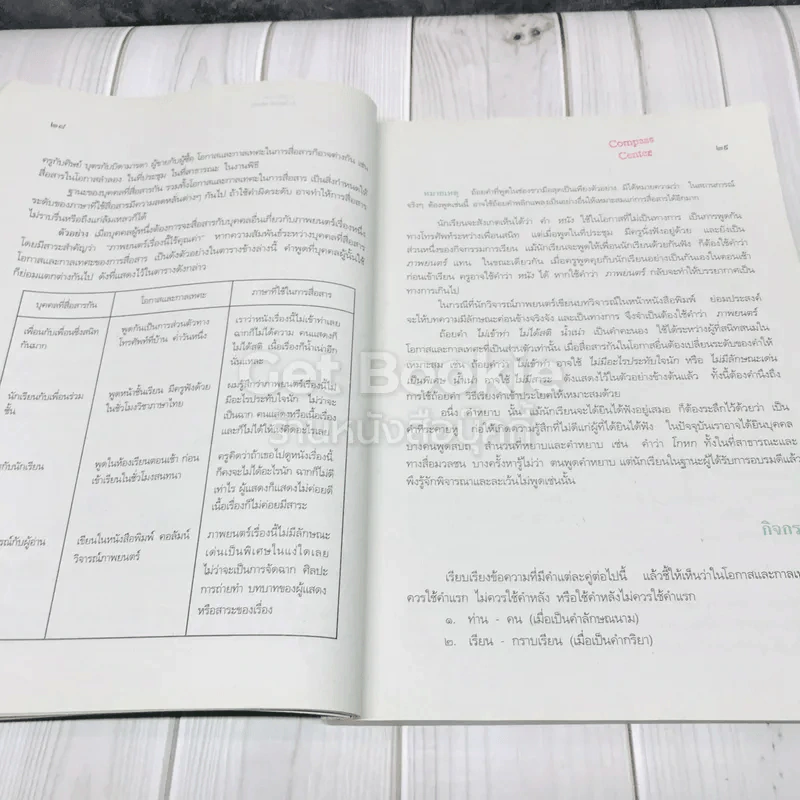 ๒๘
ครูกับศิษย์ บุตรกับบิดามารดา ผู้ขายกับผู้ซื้อ โอกาสและกาลเทศะในการสื่อสารก็อาจต่างกัน เช่น
สื่อสารในโอกาสลำลอง ในที่ประชุม ในที่สาธารณะ ในงานพิธี
ฐานะของบุคคลที่สื่อสารกัน รวมทั้งโอกาสและกาลเทศะในการสื่อสาร เป็นสิ่งกำหนดให้
ระดับของภาษาที่ใช้สื่อสารมีความลดหลั่นต่างๆ กันไป ถ้าใช้คำผิดระดับ อาจทำให้การสื่อสาร
ไม่ราบรื่นหรือถึงแก่ล้มเหลวก็ได้
ตัวอย่าง เมื่อบุคคลผู้หนึ่งต้องการจะสื่อสารกับบุคคลอื่นเกี่ยวกับภาพยนตร์เรื่องหนึ่ง
โดยมีสาระสำคัญว่า "ภาพยนตร์เรื่องนี้ไร้คุณค่า" หากความสัมพันธ์ระหว่างบุคคลที่สื่อสาร
โอกาสและกาลเทศะของการสื่อสาร เป็นดังตัวอย่างในตารางข้างล่างนี้ คำพูดที่บุคคลผู้นั้นใช้
ก็ย่อมแตกต่างกันไป ดังที่แสดงไว้ในตารางดังกล่าว
บุคคลที่สื่อสารกัน
โอกาสและกาลเทศะ
ภาษาที่ใช้ในการสื่อสาร
เพื่อนกับเพื่อนซึ่งสนิท
กันมาก
พูดกันเป็นการส่วนตัวทาง
โทรศัพท์ที่บ้าน ค่ำวันหนึ่ง
เราว่าหนังเรื่องนี้ไม่เข้าท่าเลย
ฉากก็ไม่ได้ความ คนแสดงก็
ไม่ได้สติ เนื้อเรื่องก็น้ำเน่าอีก
นั่นแหละ
นักเรียนกับเพื่อนร่วม
ชั้น
พูดหน้าชั้นเรียน มีครูฟังด้วย
ในชั่วโมงวิชาภาษาไทย
ผมรู้สึกว่าภาพยนตร์เรื่องนี้ไม่
มีอะไรประทับใจนัก ไม่ว่าจะ
เป็นฉาก คนแสดงหรือเนื้อเรื่อง
และก็ไม่ได้ให้แง่คิดอะไรเลย
กับนักเรียน
พูดในห้องเรียนตอนเช้า ก่อน
เข้าเรียนในชั่วโมงสนทนา
ครูคิดว่าถ้าเธอไปดูหนังเรื่องนี้
ก็คงจะไม่ได้อะไรนัก ฉากก็ไม่ดี
เท่าไร ผู้แสดงก็แสดงไม่ค่อยดี
เนื้อเรื่องก็ไม่ค่อยมีสาระ
รณ์กับผู้อ่าน
เขียนในหนังสือพิมพ์ คอลัมน์
วิจารณ์ภาพยนตร์
ภาพยนตร์เรื่องนี้ไม่มีลักษณะ
เด่นเป็นพิเศษในแง่ใดเลย
ไม่ว่าจะเป็นการจัดฉาก ศิลปะ
การถ่ายทำ บทบาทของผู้แสดง
หรือสาระของเรื่อง
Compass
Center
๒๙
หมายเหตุ ถ้อยคำที่พูดในช่องขวามือสุดเป็นเพียงตัวอย่าง มิได้หมายความว่า ในสถานการณ์
จริงๆ ต้องพูดเช่นนี้ อาจใช้ถ้อยคำพลิกแพลงเป็นอย่างอื่นให้เหมาะสมแก่การสื่อสารได้อีกมาก
นักเรียนจะสังเกตเห็นได้ว่า คำ หนัง ใช้ในโอกาสที่ไม่เป็นทางการ เป็นการพูดกัน
ทางโทรศัพท์ระหว่างเพื่อนสนิท แต่เมื่อพูดในที่ประชุม มีครูนั่งฟังอยู่ด้วย และยังเป็น
ส่วนหนึ่งของกิจกรรมการเรียน แม้นักเรียนจะพูดให้เพื่อนนักเรียนด้วยกันฟัง ก็ต้องใช้คำว่า
ภาพยนตร์ แทน ในขณะเดียวกัน เมื่อครูพูดคุยกับนักเรียนอย่างเป็นกันเองในตอนเช้า
ก่อนเข้าเรียน ครูอาจใช้คำว่า หนัง ได้ หากใช้คำว่า ภาพยนตร์ กลับจะทำให้บรรยากาศเป็น
ทางการเกินไป
ในกรณีที่นักวิจารณ์ภาพยนตร์เขียนบทวิจารณ์ในหน้าหนังสือพิมพ์ ย่อมประสงค์
จะให้บทความมีลักษณะค่อนข้างจริงจัง และเป็นทางการ จึงจำเป็นต้องใช้คำว่า ภาพยนตร์
ถ้อยคำ ไม่เข้าท่า ไม่ได้สติ น้ำเน่า เป็นคำคะนอง ใช้ได้ระหว่างผู้ที่สนิทสนมใน
โอกาสและกาลเทศะที่เป็นส่วนตัวเท่านั้น เมื่อสื่อสารกันในโอกาสอื่นต้องเปลี่ยนระดับของคำให้
เหมาะสม เช่น ถ้อยคำ ไม่เข้าท่า อาจใช้ ไม่มีอะไรประทับใจนัก หรือ ไม่มีลักษณะเด่น
เป็นพิเศษ น้ำเน่า อาจใช้ ไม่มีสาระ ดังแสดงไว้ในตัวอย่างข้างต้นแล้ว ทั้งนี้ต้องคำนึงถึง
การใช้ถ้อยคำ วิธีเรียงคำเข้าประโยคให้เหมาะสมด้วย
อนึ่ง คำหยาบ นั้น แม้นักเรียนจะได้ยินได้ฟังอยู่เสมอ ก็ต้องระลึกไว้ด้วยว่า เป็น
คำที่ระคายหู ก่อให้เกิดความรู้สึกที่ไม่ดีแก่ผู้ที่ได้ยินได้ฟัง ในปัจจุบันเราอาจได้ยินบุคคล
บางคนพูดสบถ สำนวนที่หยาบและคำหยาบ เช่น คำว่า โกหก ทั้งในที่สาธารณะและ
ทางสื่อมวลชน บางครั้งหารู้ไม่ว่า ตนพูดคำหยาบ แต่นักเรียนในฐานะผู้ได้รับการอบรมดีแล้ว
พึงรู้จักพิจารณาและละเว้นไม่พูดเช่นนั้น
กิจกร
เรียบเรียงข้อความที่มีคำแต่ละคู่ต่อไปนี้ แล้วชี้ให้เห็นว่าในโอกาสและกาลเท
ควรใช้คำแรก ไม่ควรใช้คำหลัง หรือใช้คำหลังไม่ควรใช้คำแรก
๑. ท่าน - คน (เมื่อเป็นคำลักษณนาม)
๒. เรียน - กราบเรียน (เมื่อเป็นคำกริยา)
Get Bookie